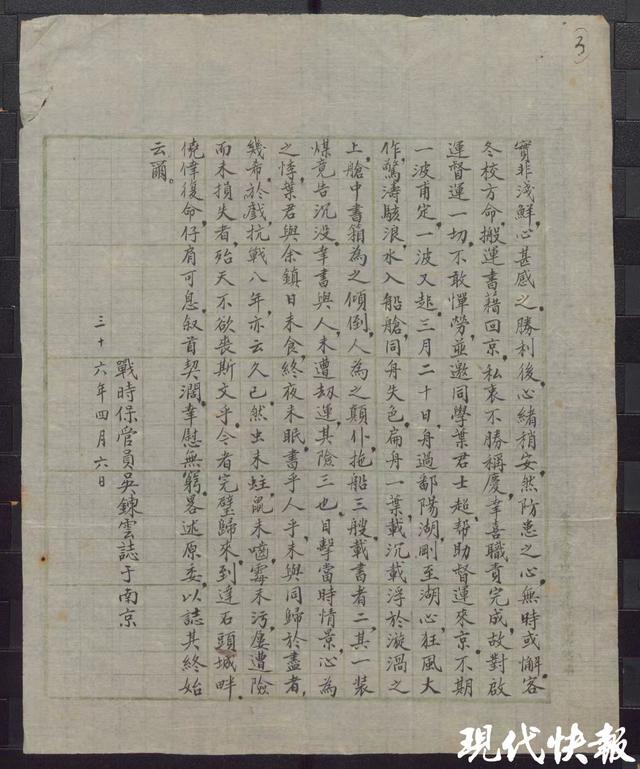 3
實非淺鮮，心甚感之。勝利後心緒稍安，然防患之心無時或懈。客
冬校方命搬運書籍回京，私衷不勝稱慶，幸喜職責完成，故對啟
運督運一切，不敢憚勞，並邀同學葉君士超，幫助督運來京，不期
一波甫定，一波又起，三月二十日，舟過鄱陽湖，剛至湖心，狂風大
作，驚濤駭浪，水入船艙，同舟失色，扁舟一葉，載沉載浮於漩渦之
上，艙中書箱為之傾倒，人為之顛仆，拖船三艘，載書者二，其一裝
煤竟告沉没，幸書與人未遭劫運，其險三也。目擊當時情景，心為
之悸，葉君與余鎮日未食，終夜未眠，書乎人乎，未與同歸於盡者，
幾希，於戲，抗戰八年，亦云久已，然虫未蛀，鼠未嚙，霉未污，屢遭險
而未損失者，殆天不欲喪斯文乎，今者完璧歸來，到達石頭城畔，
僥倖復命，仔肩可息，叙首契濶，幸慰無窮，畧述原委，以誌其終始
云爾。
戰時保管員吳鍊雲誌于南京
三十六年四月六日
現代快報